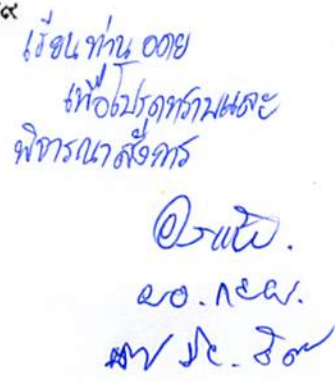 ๙
เรียน ท่าน อตย
เพื่อโปรดทราบและ
พิจารณาสั่งการ
ผอ. กยผ.